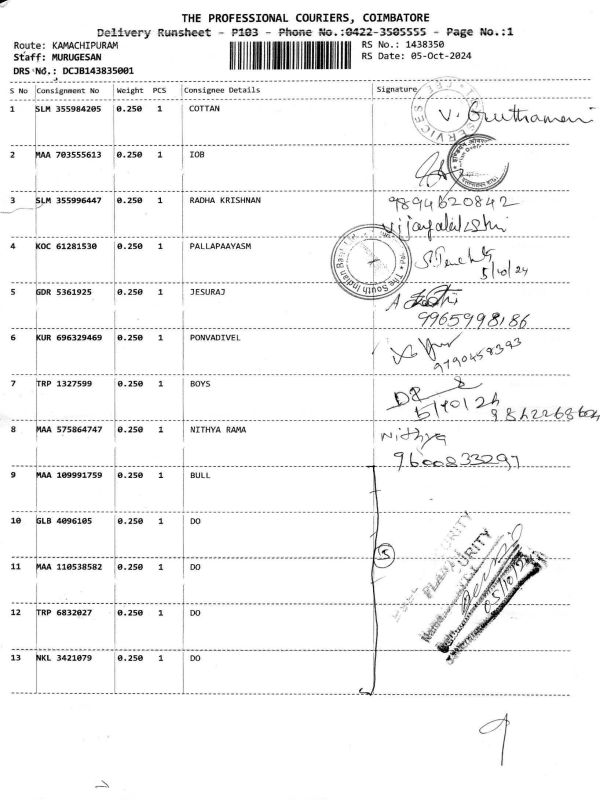 THE PROFESSIONAL COURIERS, COIMBATORE
Delivery Runsheet - P103 - Phone No.:0422-3505555 - Page No.:1
Route: KAMACHIPURAM RS No.: 1438350
Staff: MURUGESAN RS Date: 05-Oct-2024
DRS No.: DCJB143835001
S No Consignment No Weight PCS Consignee Details Signature
1 SLM 355984205 0.250 1 COTTAN
2 MAA 703555613 0.250 1 IOB
3 SLM 355996447 0.250 1 RADHA KRISHNAN 9894620842
4 KOC 61281530 0.250 1 PALLAPAAYASM
The South Indian Bank
5/10/24
5 GDR 5361925 0.250 1 JESURAJ
9965998186
6 KUR 696329469 0.250 1 PONVADIVEL
9790458393
7 TRP 1327599 0.250 1 BOYS
5/10/24
8 MAA 575864747 0.250 1 NITHYA RAMA Nithya
9600833297
9 MAA 109991759 0.250 1 BULL
10 GLB 4096105 0.250 1 DO
5
11 MAA 110538582 0.250 1 DO
05/10/24
12 TRP 6832027 0.250 1 DO
13 NKL 3421079 0.250 1 DO